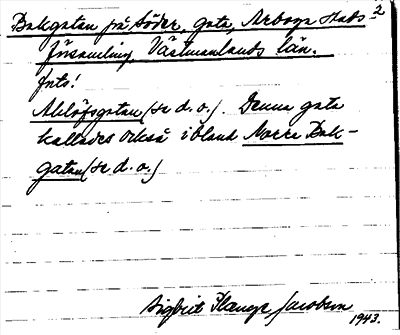 2
Bakgatan på Söder, gata, Arboga Stads
församling, Västmanlands län.
foto!
Ahllöfsgatan (se d.o.). Denna gata
kallades också ibland Norra Bak-
gatan (se d.o.)
Sigbrit Plænge Jacobson
1943.